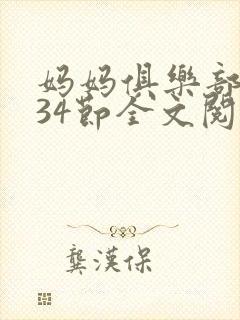 妈妈俱樂部
34節全文閱
龔漢保